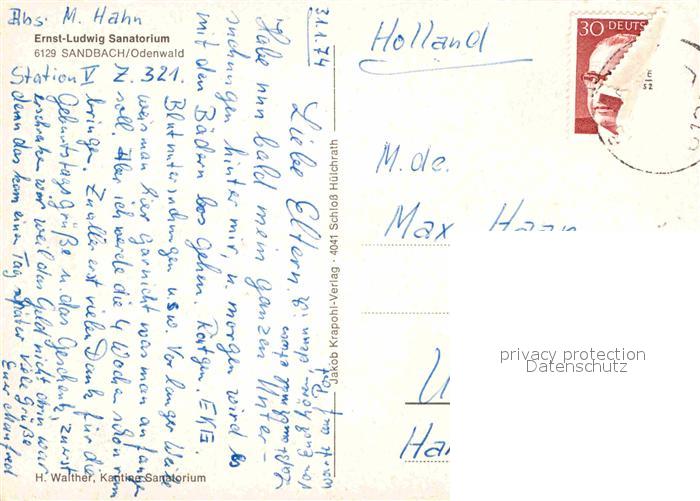 Abs. M. Hahn
Ernst-Ludwig Sanatorium
6129 SANDBACH/Odenwald
Station V Z. 321.
31.1.74
Liebe Eltern.
Habe nun bald mein ganzen Unter-
suchungen hinter mir, u. morgen wird es
mit den Bädern los gehen. Röntgen, EKG.
Blutuntersuchungen usw. Vor langer Weile
weis man hier garnicht was man anfangen
soll. Aber ich werde die 4 Wochen schon rum
bringen. Zu aller erst vielen Dank für die
Geburtstagsgrüße u. das Geschenk, zuerst
erschraken wir weil das Geld nicht drin war
denn das kam einen Tag später. Viele Grüße
Euer Manfred
H. Walther, Kantine Sanatorium
Jakob Krapohl-Verlag · 4041 Schloß Hülchrath
Holland
30 DEUTS
M. de.
Max Haan
Ha
privacy protection
Datenschutz